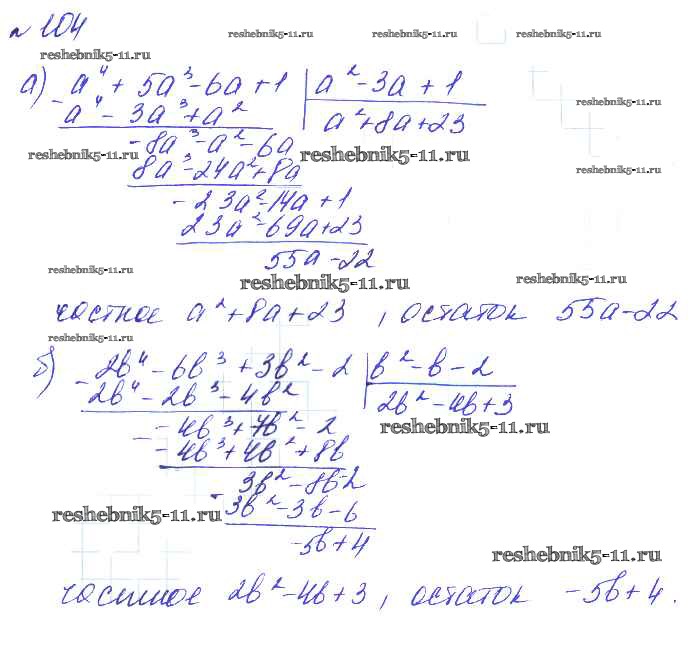 № 104
reshebnik5-11.ru reshebnik5-11.ru reshebnik5-11.ru reshebnik5-11.ru
а) a⁴ + 5a³ - 6a + 1 | a² - 3a + 1
- a⁴ - 3a³ + a² | a² + 8a + 23
- 8a³ - a² - 6a
reshebnik5-11.ru reshebnik5-11.ru reshebnik5-11.ru
8a³ - 24a² + 8a
- 23a² - 14a + 1
23a² - 69a + 23
55a - 22
reshebnik5-11.ru reshebnik5-11.ru reshebnik5-11.ru
частное a² + 8a + 23, остаток 55a - 22
reshebnik5-11.ru
б) 2b⁴ - 6b³ + 3b² - 2 | b² - b - 2
- 2b⁴ - 2b³ - 4b² | 2b² - 4b + 3
- - 4b³ + 7b² - 2
reshebnik5-11.ru
- 4b³ + 4b² + 8b
3b² - 8b - 2
- 3b² - 3b - 6
reshebnik5-11.ru
- 5b + 4
reshebnik5-11.ru
частное 2b² - 4b + 3, остаток - 5b + 4.